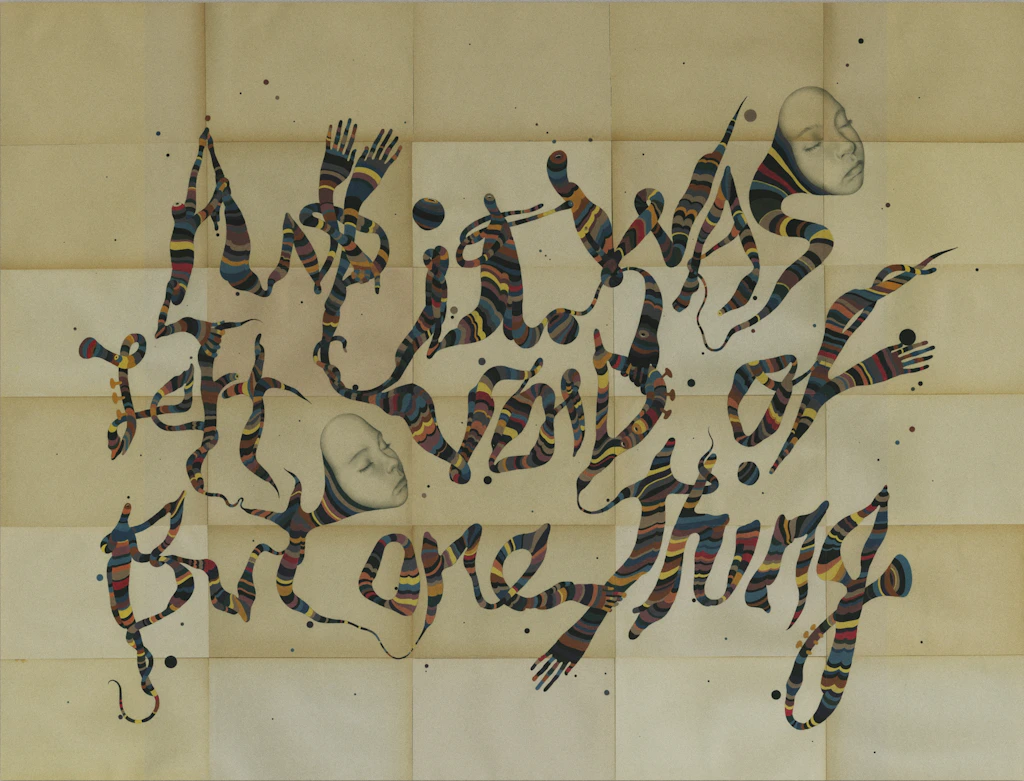 And it WAS
left void of
But one thing